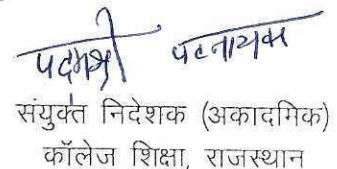 पदमश्री पटनायक
संयुक्त निदेशक (अकादमिक)
कॉलेज शिक्षा, राजस्थान